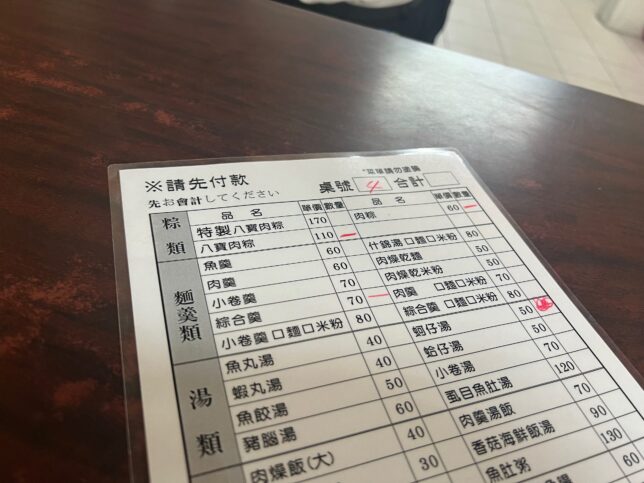 ※請先付款
先お會計してください
桌號 4 合計
品名 單價 數量 品名 單價 數量
粽類
特製八寶肉粽 170 肉粽 60
八寶肉粽 110
麵羹類
魚羹 60 什錦湯口麵口米粉 80
肉羹 60 肉燥乾麵 50
小卷羹 70 肉燥乾米粉 50
綜合羹 70 肉羹 口麵口米粉 70
小卷羹 口麵口米粉 80 綜合羹 口麵口米粉 80
湯類
魚丸湯 40 蚵仔湯 50
蝦丸湯 40 蛤仔湯 50
魚餃湯 50 小卷湯 70
豬腦湯 60 虱目魚肚湯 120
肉燥飯(大) 40 肉羹湯飯 70
30 香菇海鮮飯湯 90
魚肚粥 130
60